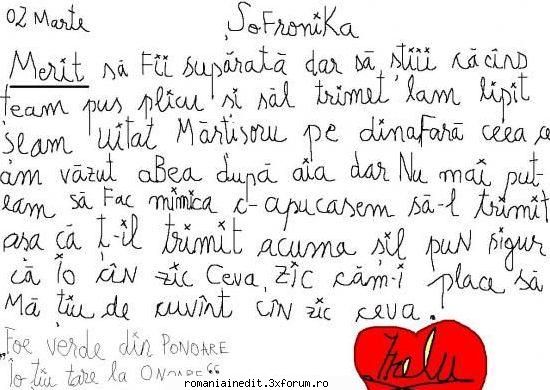 02 Marte
ȘoFroniKa
Merit să Fii supărată dar să știii că cînd
team pus plicu și săl trimet lam lipit
șeam uitat Mărțișoru pe dinaFară ceea ce
am văzut aBea după aia dar Nu mai put-
eam să Fac mimica c-apucasem să-l trimit
așa că ț-il trimit acuma șil puN sigur
că Io cîN zic Ceva, zîc căm-i place să
Mă țiu de cuvînt cîN zic ceva.
„Foe verde din PONOARE
Io țiu tare la ONOARE“
Italu
romaniainedit.3xforum.ro